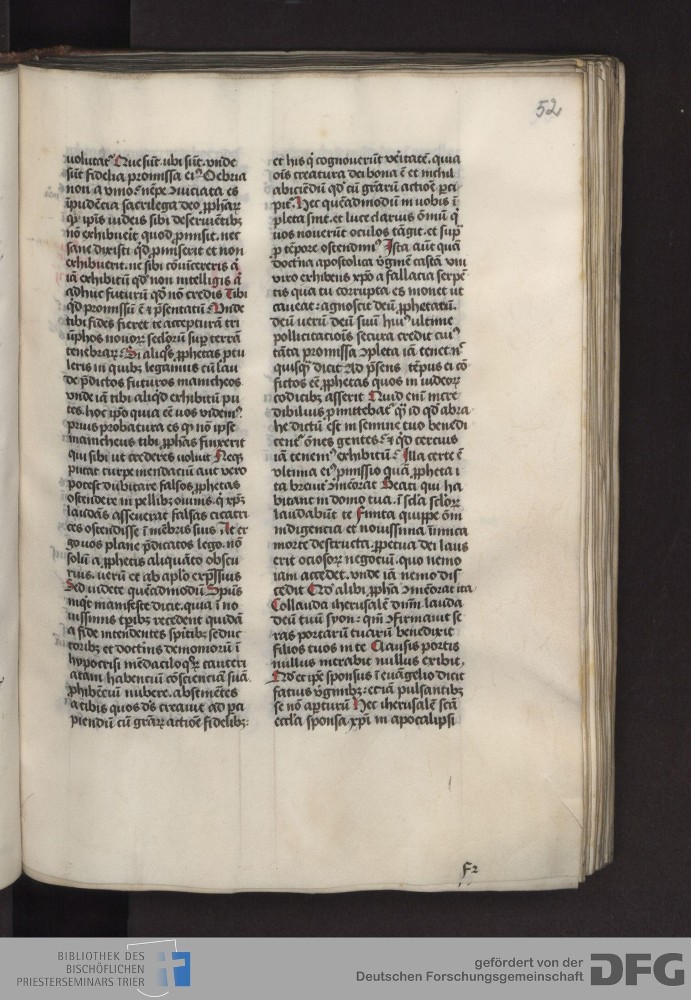 52
uolutate Que sūt. ubi sūt. vnde
sūt fidelia promissa ei⁹ Oebria
non a vino. nēpe ꝯuiciata es
īpudēcia sacrilega deo ꝓphaꝝ
qꝛ ipīs iudeis sibi deseruiētibꝫ
nō exhibueīt quod ꝓmisit. nec
sane dixisti qd ꝓmiserit et non
exhibuerit. ne sibi cōuīcereris q̄
iā exhibitū qd non intelligis ⁊
adhuc futurū qd nō credis Tibi
qd promissū ē ⁊ p̄sentatū Vnde
tibi fides fieret te accepturā tri
ūphos nouoꝝ secloꝝ sup terrā
tenebraꝝ Si aliqͦs ꝓphetas ꝓtu
leris in quibꝫ legamus cū lau
de p̄dictos futuros manicheos
vnde iā tibi aliqd exhibitū pu
tes. hoc ip̄o quia eē vos videm⁹.
prius probatura es qꝛ nō ip̄se
manicheus tibi ꝓphīas finxerit
qui sibi ut crederes uoluit Neqꝫ
putat turpe mendaciū aut vero
potest dubitare falsos ꝓphetas
ostendere in pellibꝫ ouinis. q̇ xp̄ꝫ
laudās asseuerat falsas cicatri
ces ostendisse ī mēbris suis Jt er
go uos plane p̄dicatos lego. nō
solū a ꝓphetis aliquāto obscu
rius. verū et ab aplō exp̄ssius
Sed uidete quēadmodū Sp̄us
inqͥt manifeste dicit. quia ī no
uissimis tp̄ibꝫ recedent quidā
a fide intendentes sp̄itibꝫ seduc
toribꝫ et doctīis demoniorū ī
hypocrisi mēdaciloqͦꝝ cauteri
atam habenciū cōscienciā suā
ꝓhibēciū nubere. abstinētes
a cibis quos ds̄ creauit ad ꝑci
piendū cū gr̄aꝝ actiōe fidelibꝫ:
et his q̇ cognouerūt veritatē. quia
oīs creatura dei bona ē et nichil
abiciēdū qd cū gr̄arū actiōe ꝑci
pit᷑. Nec quēadmodū in uobis ī
pleta sint. et luce clarius ōniū q̇
uos nouerūt oculos tāgit. et sup
ꝓ tēpore ostendim⁹ Jsta aūt quā
doctīna apostolica v̓ginē castā vni
viro exhibens xp̄o a fallacia serpē
tis qua tu corrupta es monet ut
caueat: agnoscit deū ꝓphetarū.
deū verū deū suū hui⁹ ultime
pollicitacioīs secura credit cui⁹
tāta promissa ꝯpleta iā tenet. nͨ
quisqꝫ dicit Ad p̄sens tēpus ei cō
fictos eē ꝓphetas quos in iudeoꝝ
codicibꝫ asserit Quid enī incre
dibilius ꝓmittebat᷑ qͣ id qd abra
he dictū est in semine tuo benedi
cent᷑ ōnes gentes. ⁊ qͥd cercius
iā tenem⁹ exhibitū ē. Jlla certe ē
vltima ei⁹ ꝓmissio quā ꝓpheta i
ta breuit᷑ ꝯmēorat Beati qui ha
bitant in domo tua. ī sclā scloꝝ
laudabūt te Finita quippe ōni
indigencia et nouissima īimica
morte destructa. ꝓpetua dei laus
erit ociosoꝝ negociū. quo nemo
iam accedet. vnde iā nemo dis
cedit Qd alibi ꝓphīa ꝯmēorat ita
Collauda iherusalē dnm̄. lauda
deū tuū syon: qm̄ ꝯfirmauit se
ras portarū tuarū benedixit
filios tuos in te Clausis portis
nullus intrabit nullus exibit,
Qd et ip̄e sponsus ī euāgelio dicit
fatuis v̓gnibꝫ. eciā pulsantibꝫ
se nō apturū Nec iherusalē scā
eccl̄a sponsa xp̄i in apocalipsi
F2
BIBLIOTHEK DES
BISCHÖFLICHEN
PRIESTERSEMINARS TRIER
gefördert von der
Deutschen Forschungsgemeinschaft
DFG